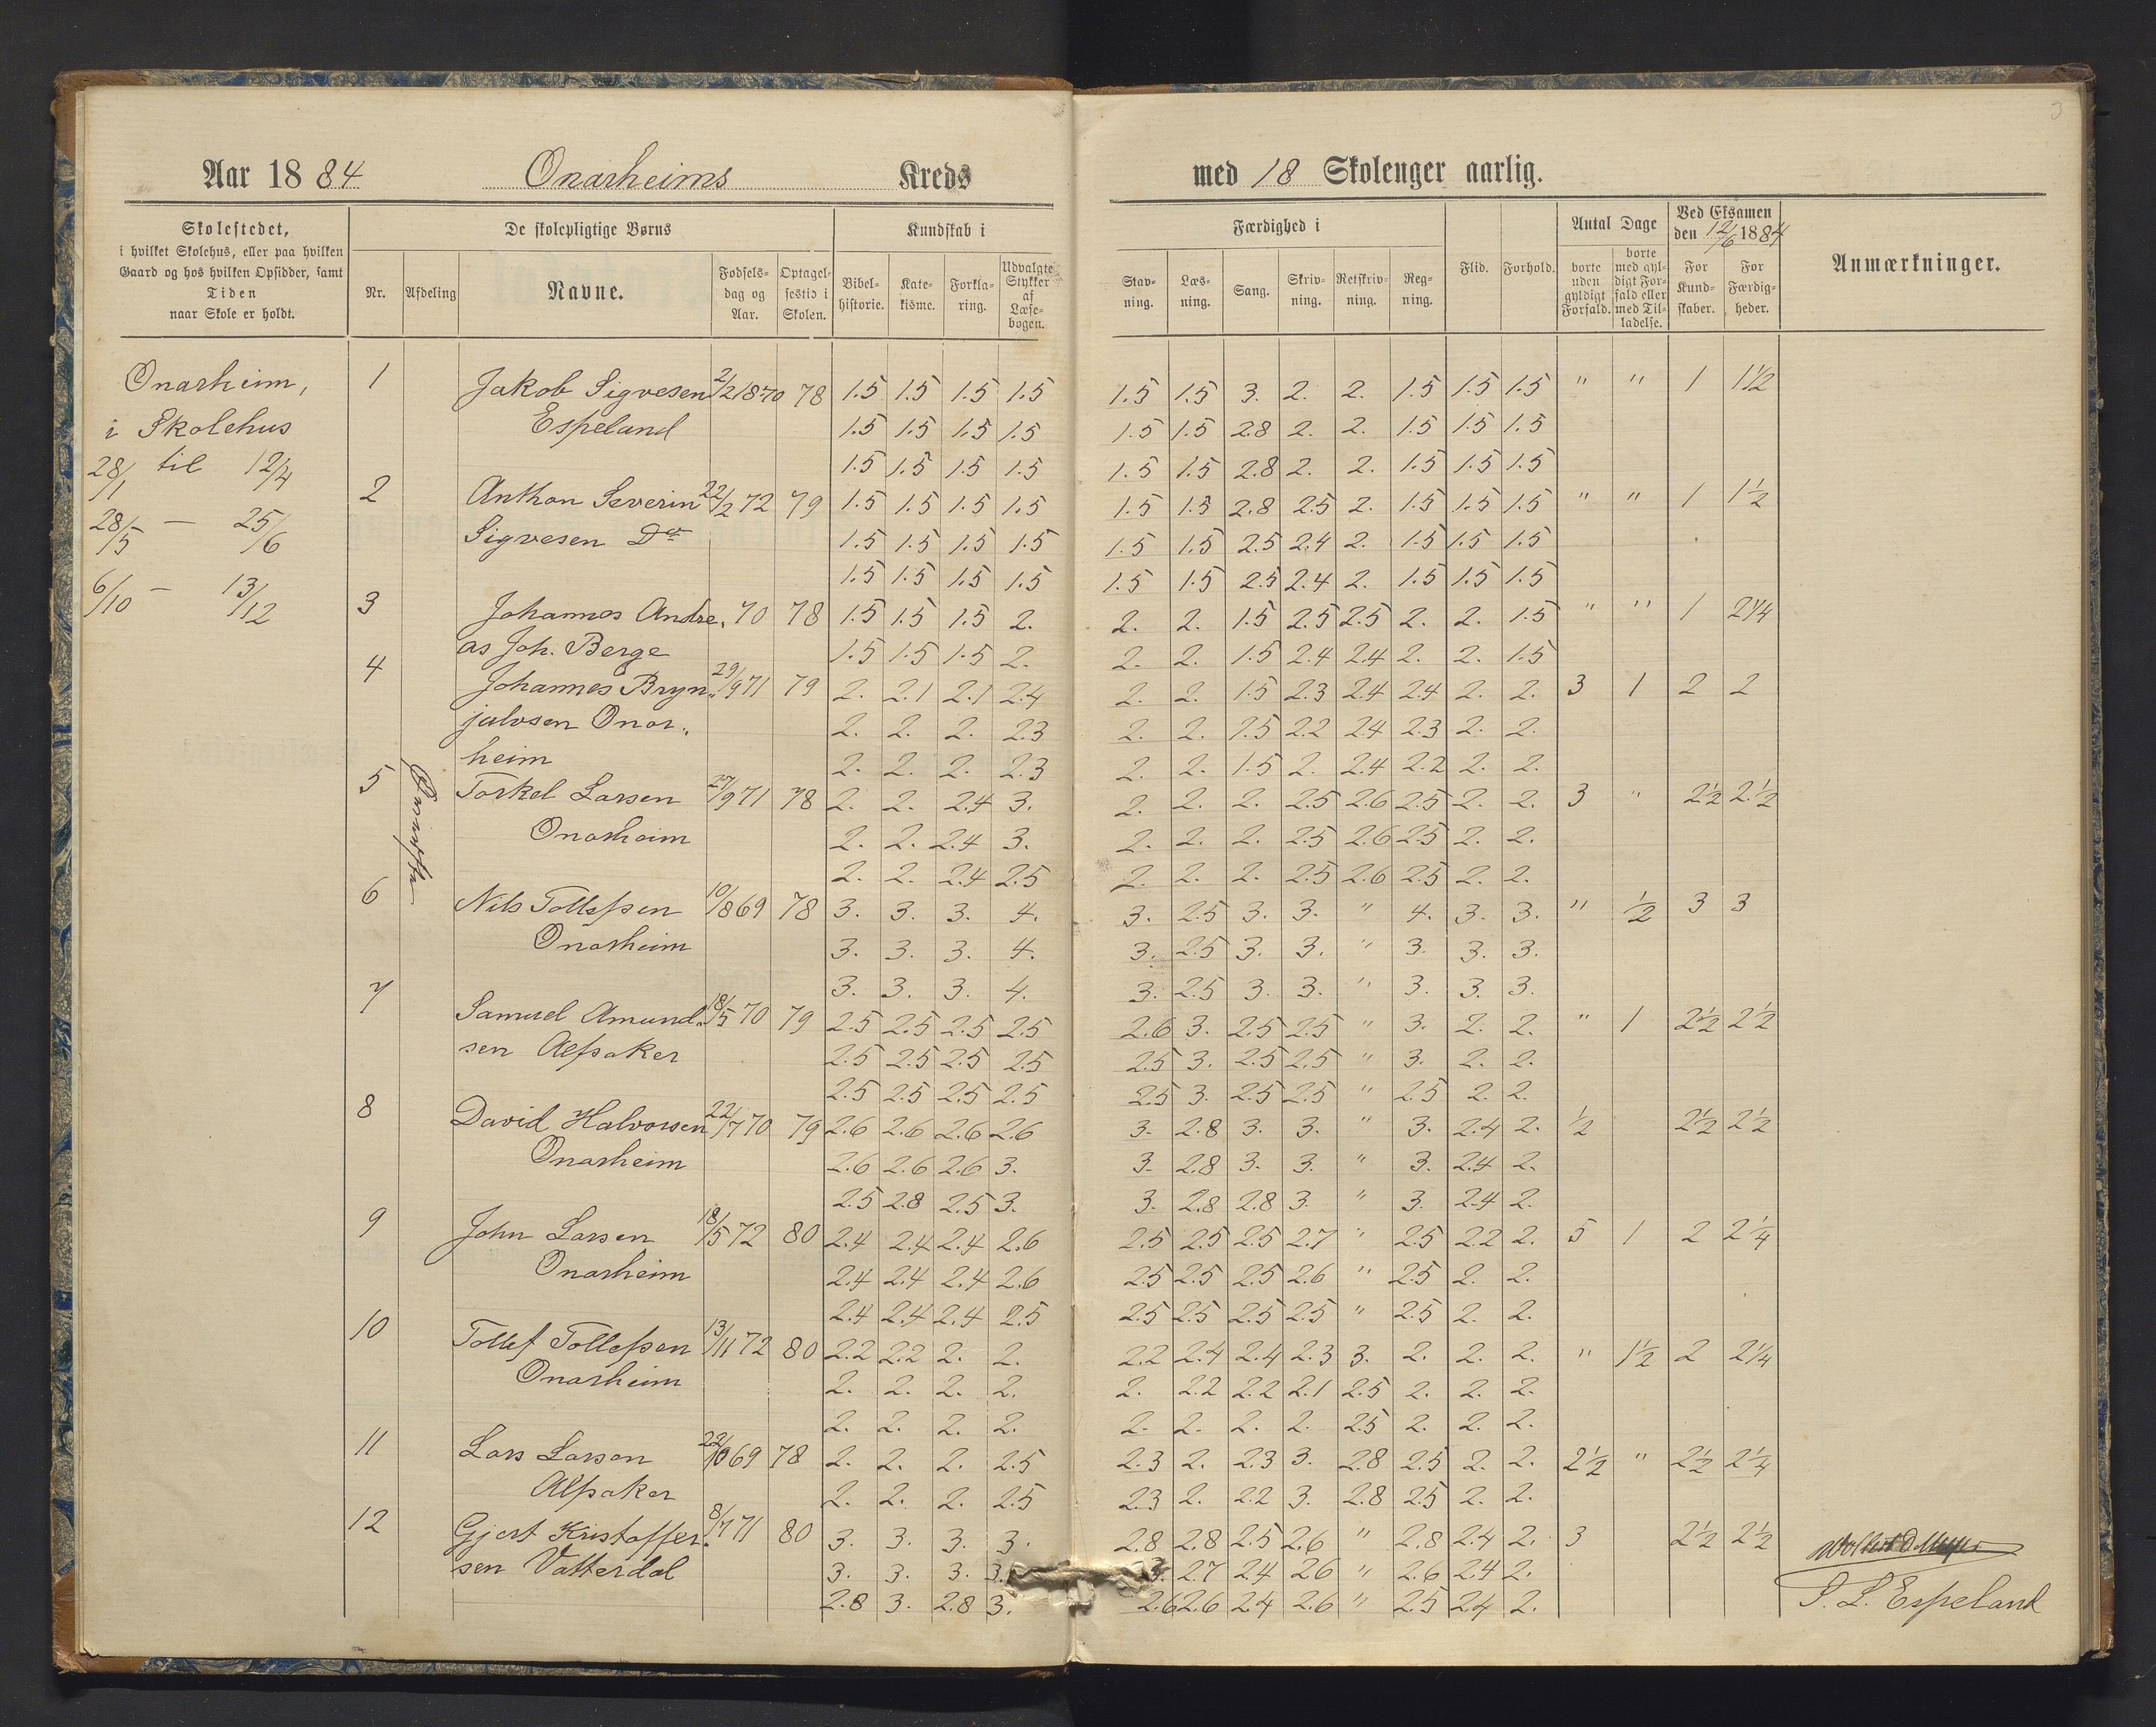 3
Aar 1884 Onarheims Kreds med 18 Skolenger aarlig.
Skolestedet,
i hvilket Skolehus, eller paa hvilken
Gaard og hos hvilken Opsidder, samt
Tiden
naar Skole er holdt.
De skolepligtige Børns
Nr. Afdeling Navne. Fødsels-dag og Aar. Optagel-sestid i Skolen.
Kundskab i
Bibel-historie. Kate-kisme. Forkla-ring. Udvalgte Stykker af Læse-bogen.
Færdighed i
Stav-ning. Læs-ning. Sang. Skriv-ning. Retskriv-ning. Reg-ning. Flid. Forhold.
Antal Dage
borte uden gyldigt Forfald. borte med gyl-digt For-fald eller med Til-ladelse.
Ved Eksamen
den 12/6 1884
For Kund-skaber. For Færdig-heder.
Anmærkninger.
Onarheim,
i Skolehus
28/1 til 12/4
28/5 — 25/6
6/10 — 13/12
1 Jakob Sigvesen 2/2 1870 78 1.5 1.5 1.5 1.5 1.5 1.5 3. 2. 2. 1.5 1.5 1.5 " " 1 1 1/2
Espeland 1.5 1.5 1.5 1.5 1.5 1.5 2.8 2. 2. 1.5 1.5 1.5
1.5 1.5 1.5 1.5 1.5 1.5 2.8 2. 2. 1.5 1.5 1.5
2 Anthon Severin 22/2 72 79 1.5 1.5 1.5 1.5 1.5 1.5 2.8 2.5 2. 1.5 1.5 1.5 " " 1 1 1/2
Sigvesen Do 1.5 1.5 1.5 1.5 1.5 1.5 2.5 2.4 2. 1.5 1.5 1.5
1.5 1.5 1.5 1.5 1.5 1.5 2.5 2.4 2. 1.5 1.5 1.5
3 Johannes Andre„ 70 78 1.5 1.5 1.5 2. 2. 2. 1.5 2.5 2.5 2. 2. 1.5 " " 1 2 1/4
as Joh. Berge 1.5 1.5 1.5 2. 2. 2. 1.5 2.4 2.4 2. 2. 1.5
4 Johannes Bryn„ 29/9 71 79 2. 2.1 2.1 2.4 2. 2. 1.5 2.3 2.4 2.4 2. 2. 3 1 2 2
julvsen Onar„ 2. 2. 2. 2.3 2. 2. 1.5 2.2 2.4 2.3 2. 2.
heim 2. 2. 2. 2.3 2. 2. 1.5 2. 2.4 2.2 2. 2.
5 Torkel Larsen 27/9 71 78 2. 2. 2.4 3. 2. 2. 2. 2.5 2.6 2.5 2. 2. 3 " 2 1/2 2 1/2
Onarheim 2. 2. 2.4 3. 2. 2. 2. 2.5 2.6 2.5 2. 2.
2. 2. 2.4 2.5 2. 2. 2. 2.5 2.6 2.5 2. 2.
6 Nils Tollefsen 10/8 69 78 3. 3. 3. 4. 3. 2.5 3. 3. " 4. 3. 3. " 1/2 3 3
Onarheim 3. 3. 3. 4. 3. 2.5 3. 3. " 3. 3. 3.
3. 3. 3. 4. 3. 2.5 3. 3. " 3. 3. 3.
7 Samuel Amund„ 18/5 70 79 2.5 2.5 2.5 2.5 2.6 3. 2.5 2.5 " 3. 2. 2. " 1 2 1/2 2 1/2
sen Alsaker 2.5 2.5 2.5 2.5 2.5 3. 2.5 2.5 " 3. 2. 2.
2.5 2.5 2.5 2.5 2.5 3. 2.5 2.5 " 2.5 2. 2.
8 David Halvorsen 22/7 70 79 2.6 2.6 2.6 2.6 3. 2.8 3. 3. " 3. 2.4 2. 1/2 2 1/2 2 1/2
Onarheim 2.6 2.6 2.6 3. 3. 2.8 3. 3. " 3. 2.4 2.
2.5 2.8 2.5 3. 3. 2.8 2.8 3. " 3. 2.4 2.
9 John Larsen 18/5 72 80 2.4 2.4 2.4 2.6 2.5 2.5 2.5 2.7 " 2.5 2.2 2. 5 1 2 2 1/4
Onarheim 2.4 2.4 2.4 2.6 2.5 2.5 2.5 2.6 " 2.5 2. 2.
2.4 2.4 2.4 2.5 2.5 2.5 2.5 2.5 " 2.5 2. 2.
10 Tollef Tollefsen 13/11 72 80 2.2 2.2 2. 2. 2.2 2.4 2.4 2.3 3. 2. 2. 2. " 1 1/2 2 2 1/4
Onarheim 2. 2. 2. 2. 2. 2.2 2.2 2.1 2.5 2. 2. 2.
2. 2. 2. 2. 2. 2. 2. 2. 2.5 2. 2. 2.
11 Lars Larsen 22/10 69 78 2. 2. 2. 2.5 2.3 2. 2.3 3. 2.8 2.5 2. 2. 2 1/2 " 2 1/2 2 1/4
Alsaker 2. 2. 2. 2.5 2.3 2. 2.2 3. 2.8 2.5 2. 2.
12 Gjert Kristoffer„ 8/7 71 80 3. 3. 3. 3. 2.8 2.8 2.5 2.6 " 2.8 2.4 2. 3 2 1/2 2 1/2
sen Vatterdal 3. 3. 3. 3. 3. 2.7 2.4 2.6 " 2.6 2.4 2.
2.8 3. 2.8 3. 2.6 2.6 2.4 2.6 " 2.5 2.4 2.
S. L. Espeland